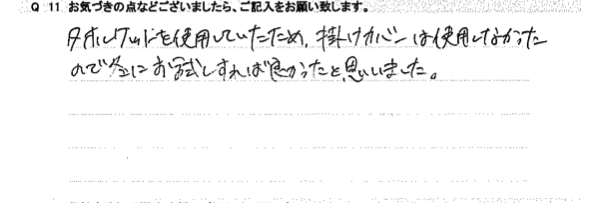 Q 11 お気づきの点などございましたら、ご記入をお願い致します。
タオルケットを使用していたため、掛けカバーは使用しなかった
ので冬にお試しすれば良かったと思いました。